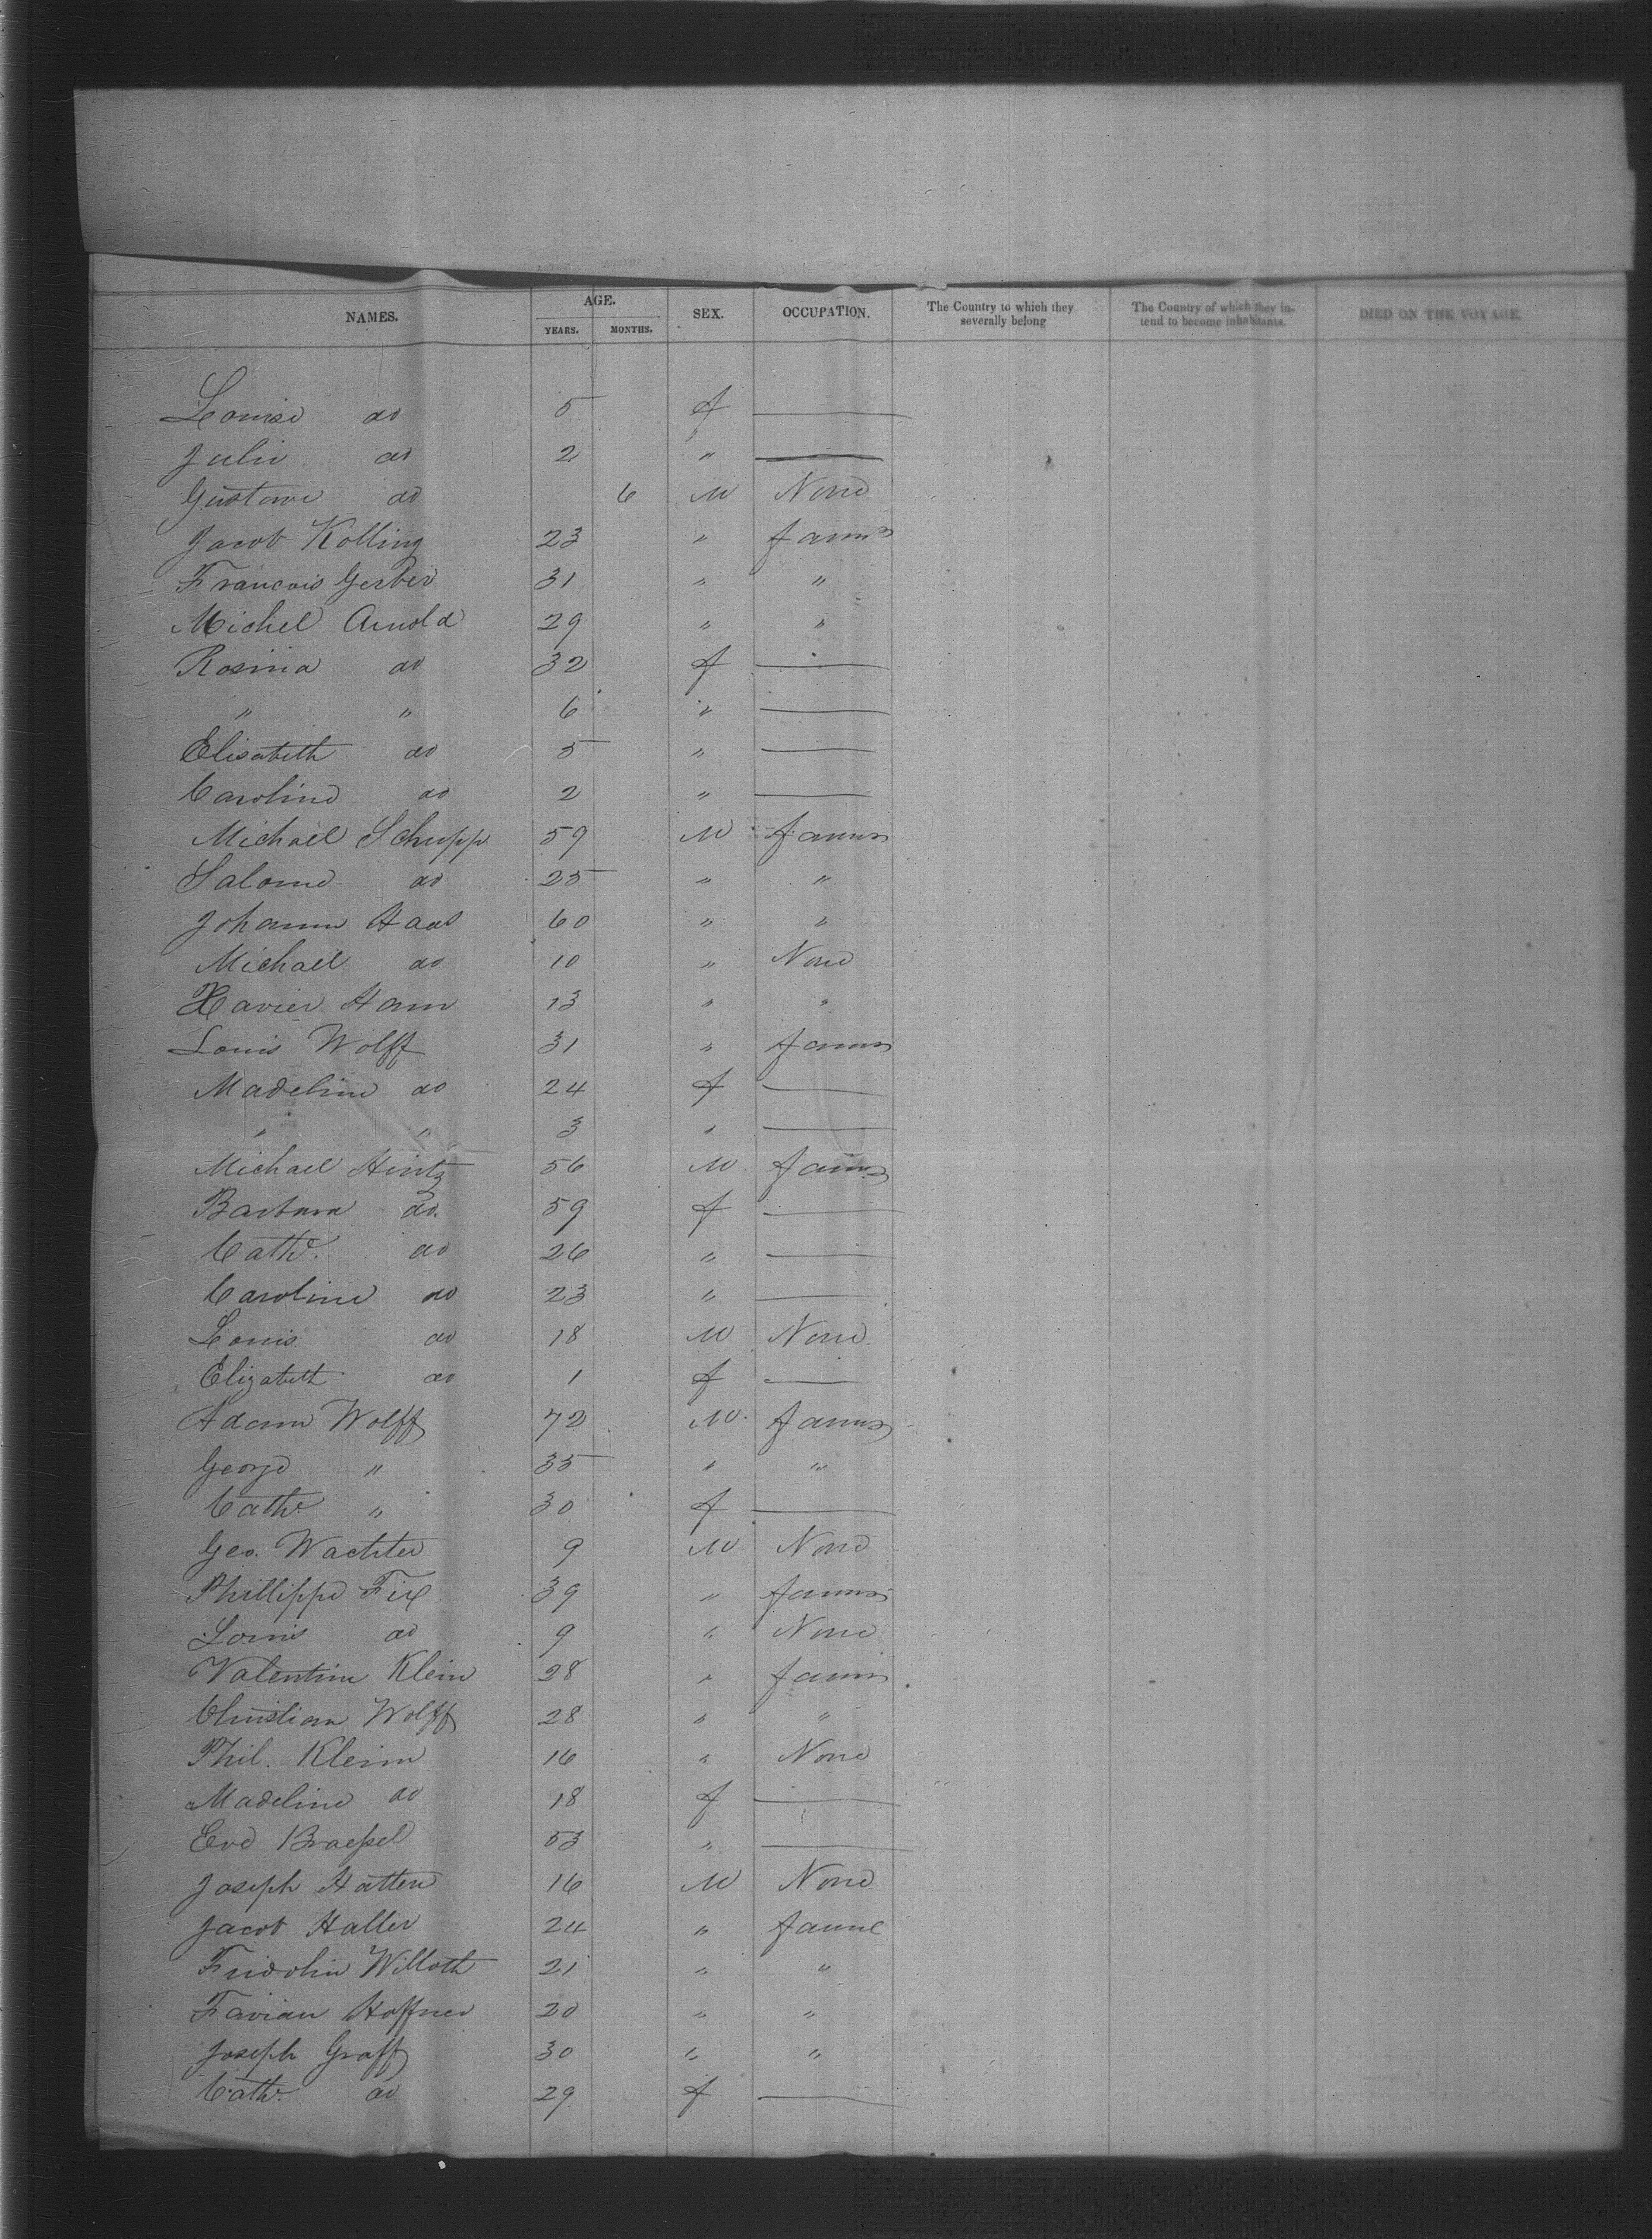 NAMES. AGE. YEARS. MONTHS. SEX. OCCUPATION. The Country to which they severally belong The Country of which they intend to become inhabitants. DIED ON THE VOYAGE.
Louise do 5 f —
Julie do 2 " —
Gustave do 6 M None
Jacob Kolling 23 " Farmer
Francois Gerber 31 " "
Michel Arnold 29 " "
Rosina do 32 f —
" " 6 " —
Elisabeth do 5 " —
Caroline do 2 " —
Michael Schupp 59 M Farmer
Salome do 25 " "
Johann Haas 60 " "
Michael do 10 " None
Xavier Hann 13 " "
Louis Wolff 31 " Farmer
Madeline do 24 f —
" " 3 " —
Michael Hintz 56 M Farmer
Barbara do. 59 f —
Cathe. do 26 " —
Caroline do 23 " —
Louis do 18 M None
Elizabeth do 1 f —
Adam Wolff 72 M. Farmer
George " 35 " "
Cathe " 30 f —
Geo. Wachter 9 M None
Phillippe Fix 39 " Farmer
Louis do 9 " None
Valentin Klein 28 " Farmer
Christian Wolff 28 " "
Phil. Klein 16 " None
Madeline do 18 f —
Eve 53 " —
Joseph Hatten 16 M None
Jacob Haller 24 " Farme
Fridolin Willoth 21 " "
Favian Hoffner 20 " "
Joseph Graff 30 " "
Cathe. do 29 f —